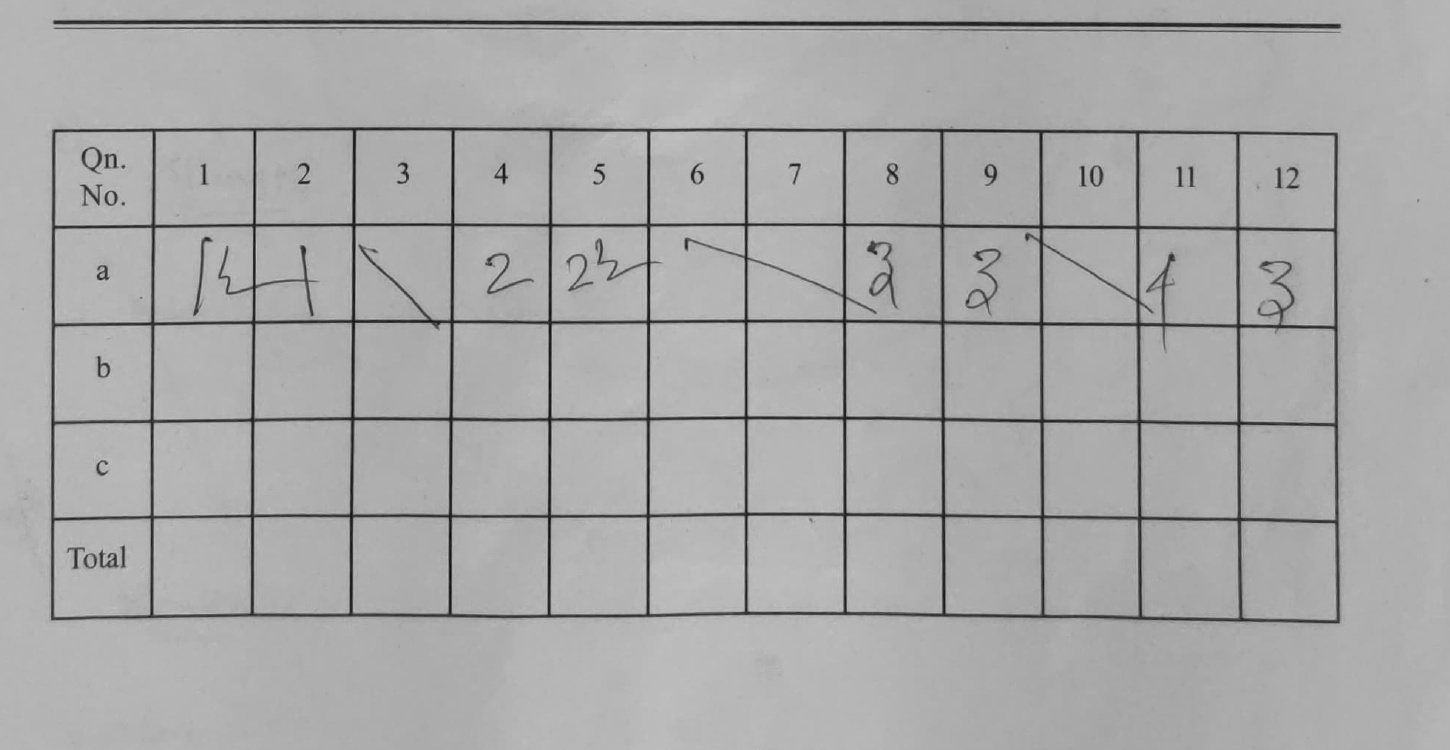 Qn. No. 1 2 3 4 5 6 7 8 9 10 11 12
a 1½ 1 \ 2 2½ \ 3 3 \ 4 3
b
c
Total